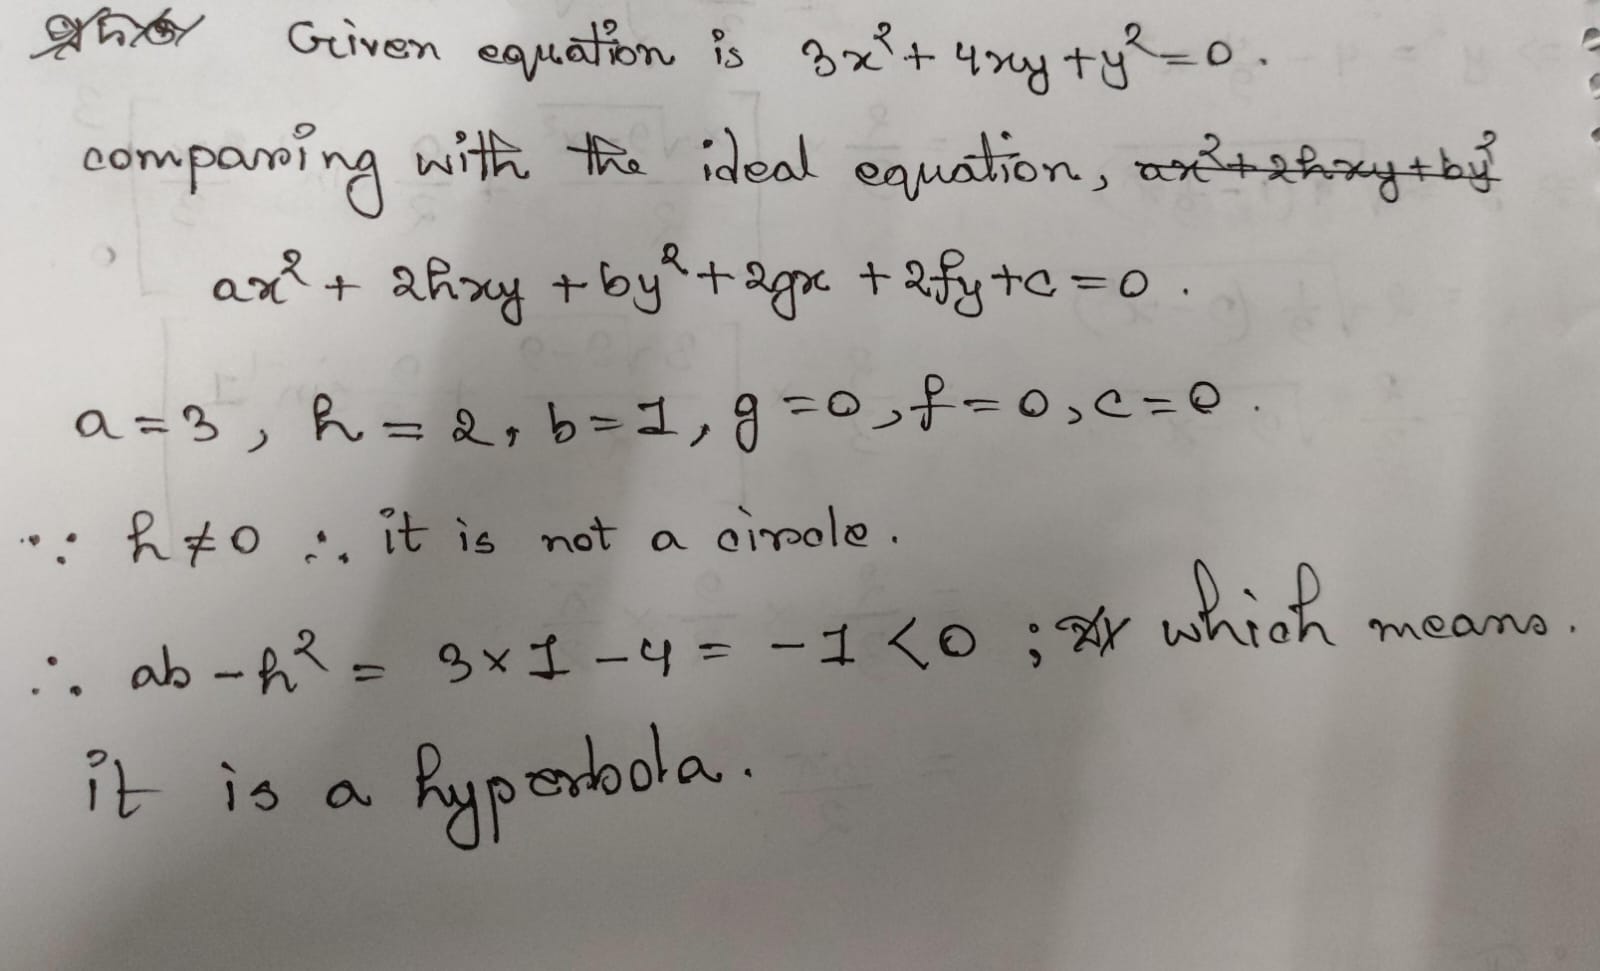 Given equation is 3x² + 4xy + y² = 0.
comparing with the ideal equation, ax² + 2hxy + by²
ax² + 2hxy + by² + 2gx + 2fy + c = 0.
a = 3, h = 2, b = 1, g = 0, f = 0, c = 0.
∵ h ≠ 0 ∴ it is not a circle.
∴ ab - h² = 3×1 - 4 = -1 < 0 ; which means.
it is a hyperbola.